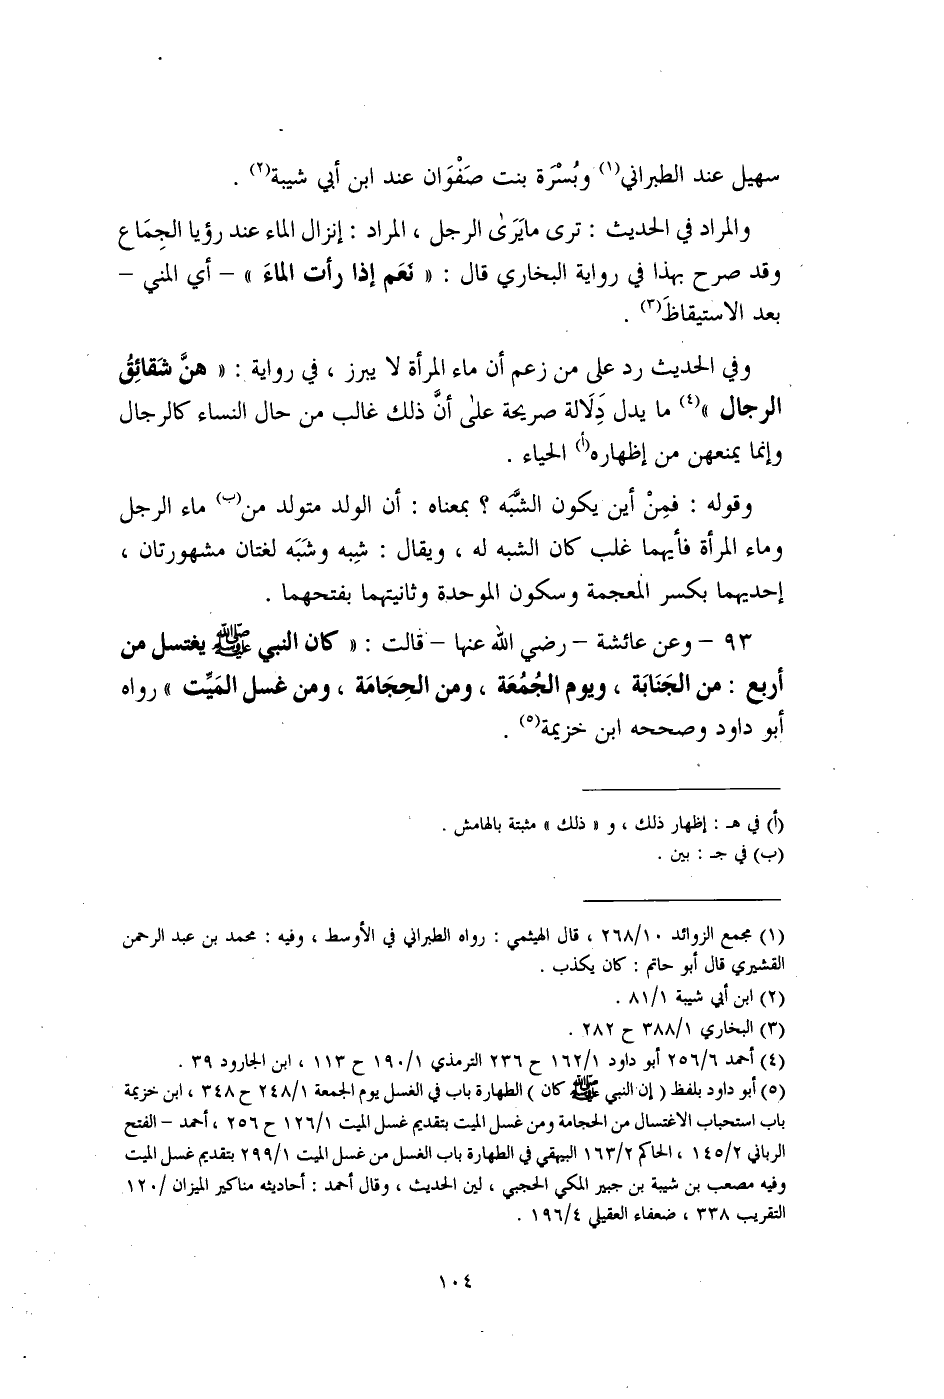 سهيل عند الطبراني(١) وبُسْرَة بنت صَفْوَان عند ابن أبي شيبة(٢) .
والمراد في الحديث : ترى مايَرَىٰ الرجل ، المراد : إنزال الماء عند رؤيا الجِمَاع
وقد صرح بهذا في رواية البخاري قال : « نَعَم إذا رأت الماءَ » – أي المني –
بعد الاستيقاظَ(٣) .
وفي الحديث رد على من زعم أن ماء المرأة لا يبرز ، في رواية : « هنَّ شَقائِقُ
الرجال »(٤) ما يدل دِلَالة صريحة علىٰ أنَّ ذلك غالب من حال النساء كالرجال
وإنما يمنعهن من إظهاره(أ) الحياء .
وقوله : فمِنْ أين يكون الشَّبَه ؟ بمعناه : أن الولد متولد من(ب) ماء الرجل
وماء المرأة فأيهما غلب كان الشبه له ، ويقال : شِبه وشَبَه لغتان مشهورتان ،
إحديهما بكسر المعجمة وسكون الموحدة وثانيتهما بفتحهما .
٩٣ – وعن عائشة – رضي الله عنها – قالت : « كان النبي ﷺ يغتسل من
أربع : من الجَنَابَة ، ويوم الجُمُعَة ، ومن الحِجَامَة ، ومن غسل المَيِّت » رواه
أبو داود وصححه ابن خزيمة(٥) .
(أ) في هـ : إظهار ذلك ، و « ذلك » مثبتة بالهامش .
(ب) في جـ : بين .
(١) مجمع الزوائد ٢٦٨/١٠ ، قال الهيثمي : رواه الطبراني في الأوسط ، وفيه : محمد بن عبد الرحمن
القشيري قال أبو حاتم : كان يكذب .
(٢) ابن أبي شيبة ٨١/١ .
(٣) البخاري ٣٨٨/١ ح ٢٨٢ .
(٤) أحمد ٢٥٦/٦ أبو داود ١٦٢/١ ح ٢٣٦ الترمذي ١٩٠/١ ح ١١٣ ، ابن الجارود ٣٩ .
(٥) أبو داود بلفظ ( إن النبي ﷺ كان ) الطهارة باب في الغسل يوم الجمعة ٢٤٨/١ ح ٣٤٨ ، ابن خزيمة
باب استحباب الاغتسال من الحجامة ومن غسل الميت بتقديم غسل الميت ١٢٦/١ ح ٢٥٦ ، أحمد – الفتح
الرباني ١٤٥/٢ ، الحاكم ١٦٣/٢ البيهقي في الطهارة باب الغسل من غسل الميت ٢٩٩/١ بتقديم غسل الميت
وفيه مصعب بن شيبة بن جبير المكي الحجبي ، لين الحديث ، وقال أحمد : أحاديثه مناكير الميزان /١٢٠
التقريب ٣٣٨ ، ضعفاء العقيلي ١٩٦/٤ .
١٠٤